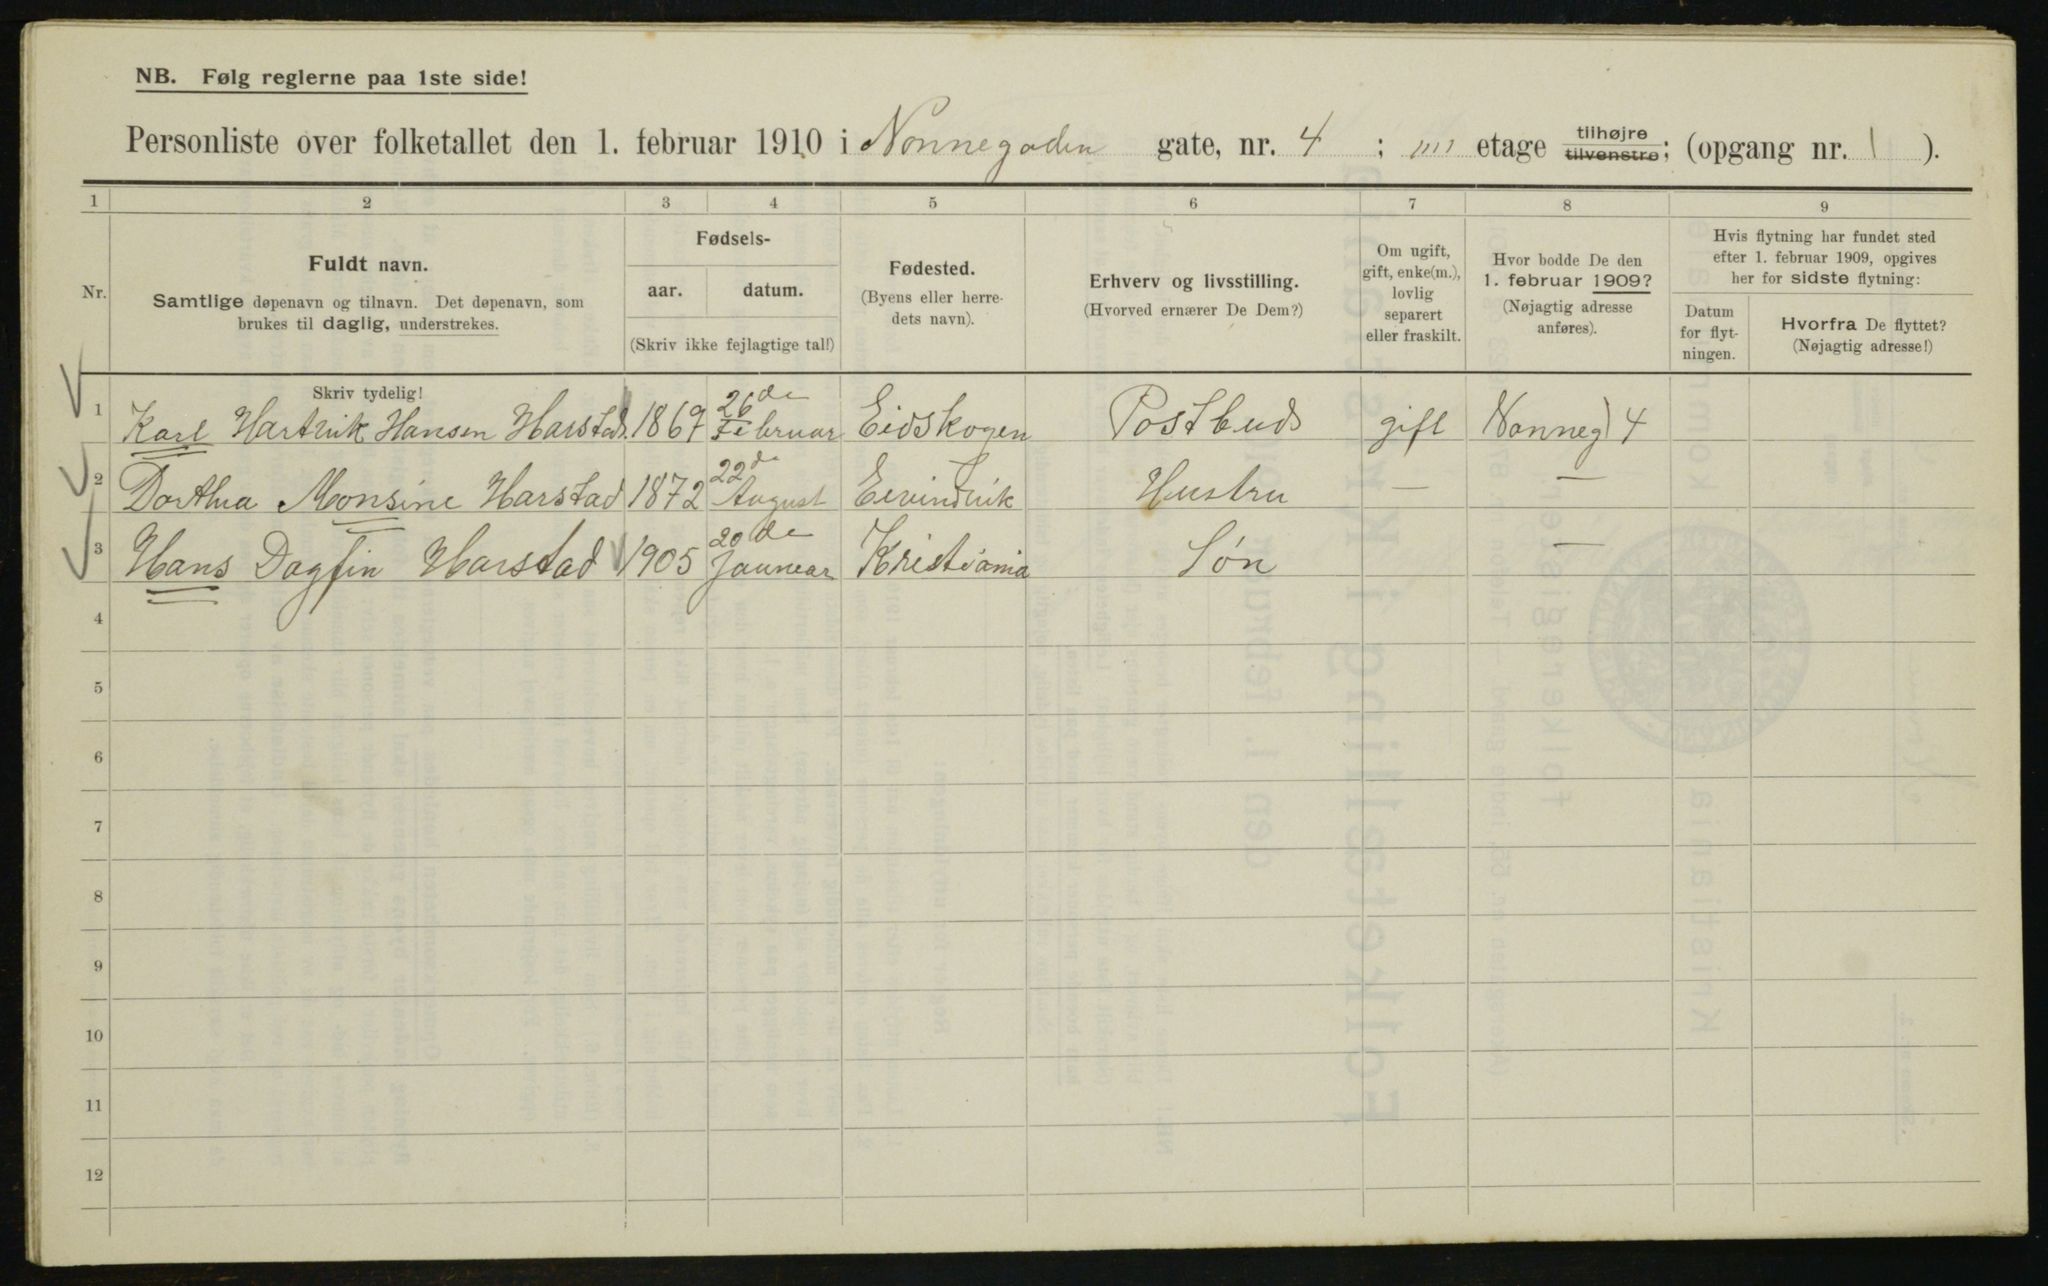 NB. Følg reglerne paa 1ste side!
Personliste over folketallet den 1. februar 1910 i Nonnegaden gate, nr. 4 ; IIII etage tilhøjre tilvenstre; (opgang nr. 1 ).
1 2 3 4 5 6 7 8 9
Nr.
Fuldt navn.
Samtlige døpenavn og tilnavn. Det døpenavn, som
brukes til daglig, understrekes.
Fødsels-
aar. datum.
(Skriv ikke fejlagtige tal!)
Fødested.
(Byens eller herre-
dets navn).
Erhverv og livsstilling.
(Hvorved ernærer De Dem?)
Om ugift,
gift, enke(m.),
lovlig
separert
eller fraskilt.
Hvor bodde De den
1. februar 1909?
(Nøjagtig adresse
anføres).
Hvis flytning har fundet sted
efter 1. februar 1909, opgives
her for sidste flytning:
Datum
for flyt-
ningen.
Hvorfra De flyttet?
(Nøjagtig adresse!)
Skriv tydelig!
1 Karl Hartvik Hansen Harstad. 1867 26de Februar Eidskogen Postbud gift Nonneg 4
2 Dorthea Monsine Harstad 1872 22de August Eivindvik Hustru — —
3 Hans Dagfin Harstad 1905 20de Januear Kristiania Søn —
4
5
6
7
8
9
10
11
12